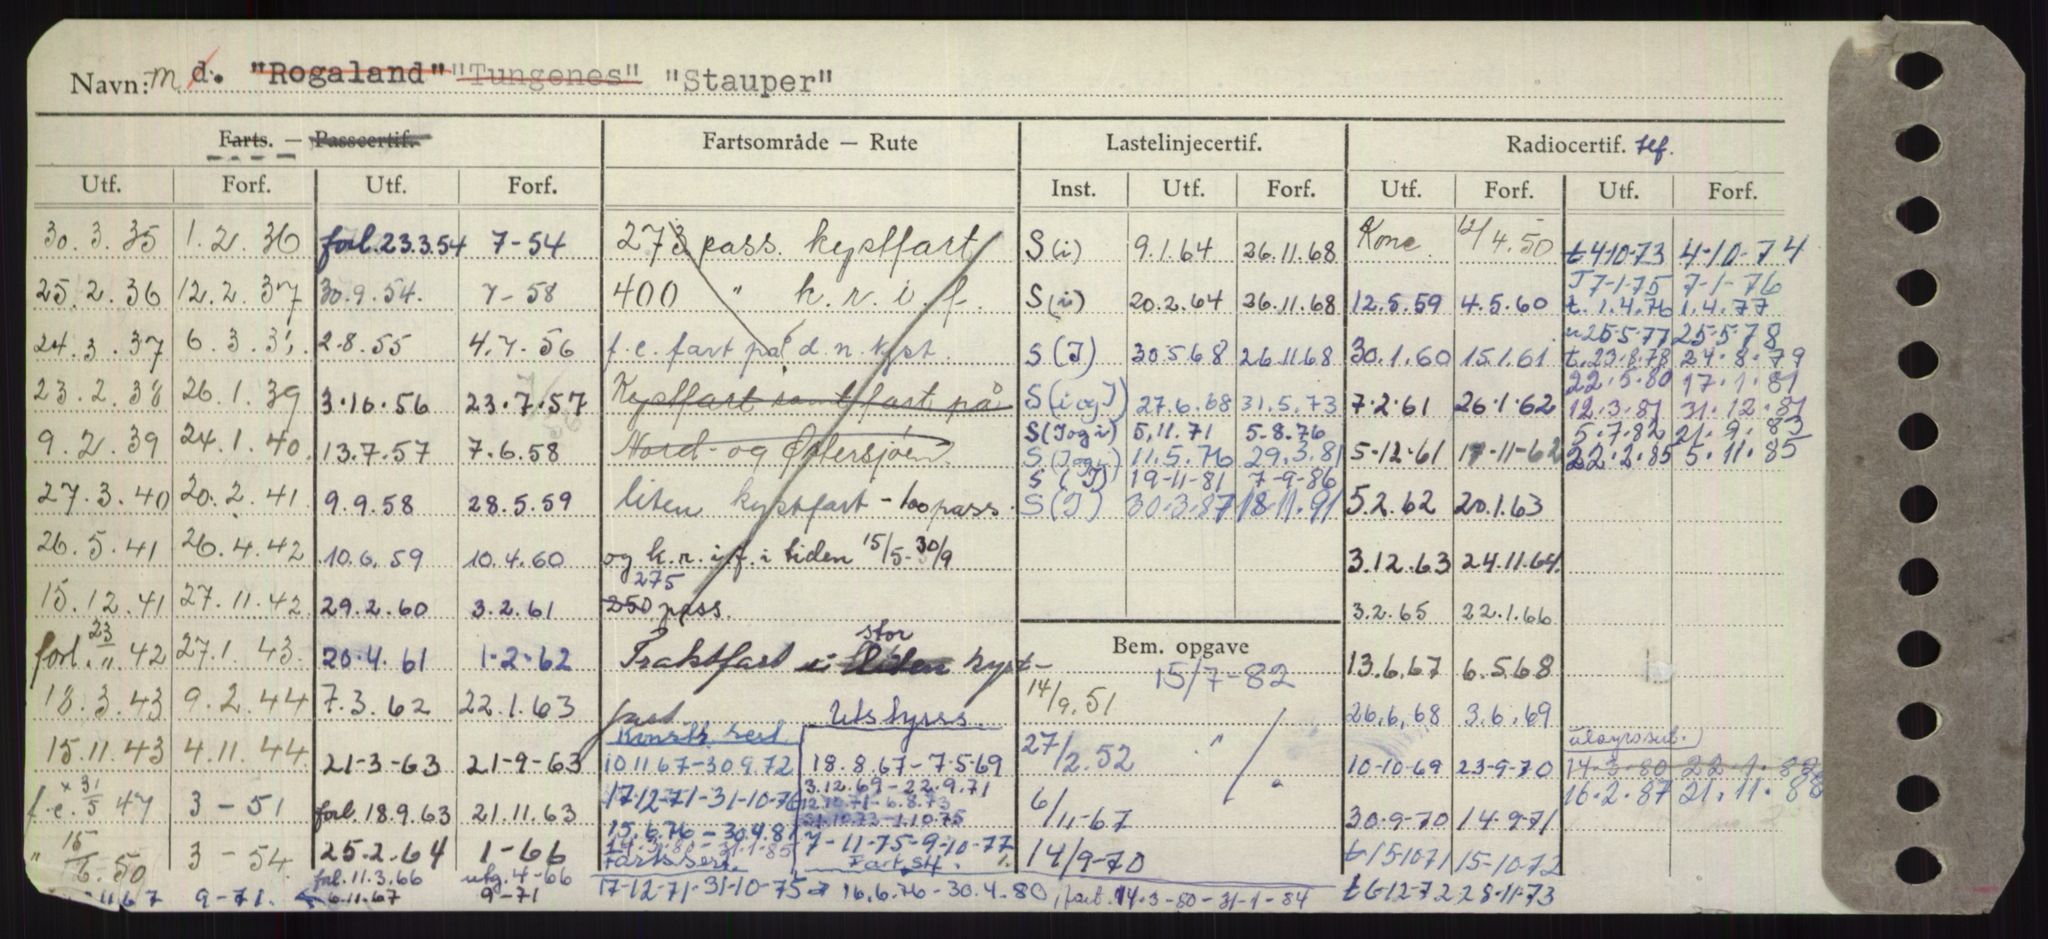 Navn: M d. "Rogaland" "Tungenes" "Stauper"
Farts. — Passcertif. Fartsområde — Rute Lastelinjecertif. Radiocertif. tlf.
Utf. Forf. Utf. Forf. Inst. Utf. Forf. Utf. Forf. Utf. Forf.
30.3.35 1.2.36 forl.23.3.54 7-54 273 pass. kystfart S(i) 9.1.64 26.11.68 Konc. 12/4.50 t 4-10-73 4-10-74
T 7-1-75 7-1-76
25.2.36 12.2.37 30.9.54. 7-58 400 " k.r.i.f. S(i) 20.2.64 26.11.68 12.5.59 4.5.60 t. 1.4.76 1.4.77
25-5-77 25-5-78
24.3.37 6.3.3 2.8.55 4.7.56 f.e. fart på d.n. kyst. S(I) 30.5.68 26.11.68 30.1.60 15.1.61 t.23.8.78 24.8.79
22.5.80 17.1.81
23.2.38 26.1.39 3.10.56 23.7.57 Kystfart samt fart på S(i og I) 27.6.68 31.5.73 7.2.61 26.1.62 12.3.81 31.12.81
S(I og i) 5.11.71 5.8.76 5.7.82 21.9.83
9.2.39 24.1.40. 13.7.57 7.6.58 Nord- og Østersjøen. S(I og i) 11.5.76 29.3.81 5-12-61 17-11-62 22.2.85 5.11.85
S(I) 19-11-81 7-9-86
27.3.40 20.2.41. 9.9.58 28.5.59 liten kystfart - 100 pass. S(I) 30.3.87 18.11.91 5.2.62 20.1.63
26.5.41 26.4.42 10.6.59 10.4.60 og k.r.i.f. i tiden 15/5-30/9 3.12.63 24.11.64.
275
15.12.41 27.11.42 29.2.60 3.2.61 250 pass. 3.2.65 22.1.66
stor Bem. opgave
forl. 23/11 42 27.1.43. 20.4.61 1.2.62 Fraktfart i liten kyst- 15/7-82 13.6.67 6.5.68
18.3.43 9.2.44 7.3.62 22.1.63 fart Utstyrss. 14/9.51 26.6.68 3.6.69
Konstr. sert. utstyrssert.
15.11.43 4.11.44 21-3-63 21-9-63 10.11.67-30.9.72 18.8.67-7.5.69 27/2.52 " 10-10-69 23-9-70 14-3-80
3.12.69-22.9.71 16.2.87 21.11.88
f.e. x 31/5 47 3-51 forl.18.9.63 21.11.63 17-12-71-31-10-76 12.10.71-6.8.73 6/11-67 30-9-70 14-9-71
15.6.76-30.4.81
" 15/6.50 3-54. 25.2.64 1-66 7-11-75-9-10-77 14/9-70 t 15-10-71 15-10-72
forl.11.3.66 utg.4-66 Fartssert.
11 67 9-71. 6.11.67 9-71 17-12-71-31-10-75 → 16.6.76-30.4.80, fart. 14-3-80-31-1-84 t 6-12-72 28-11-73